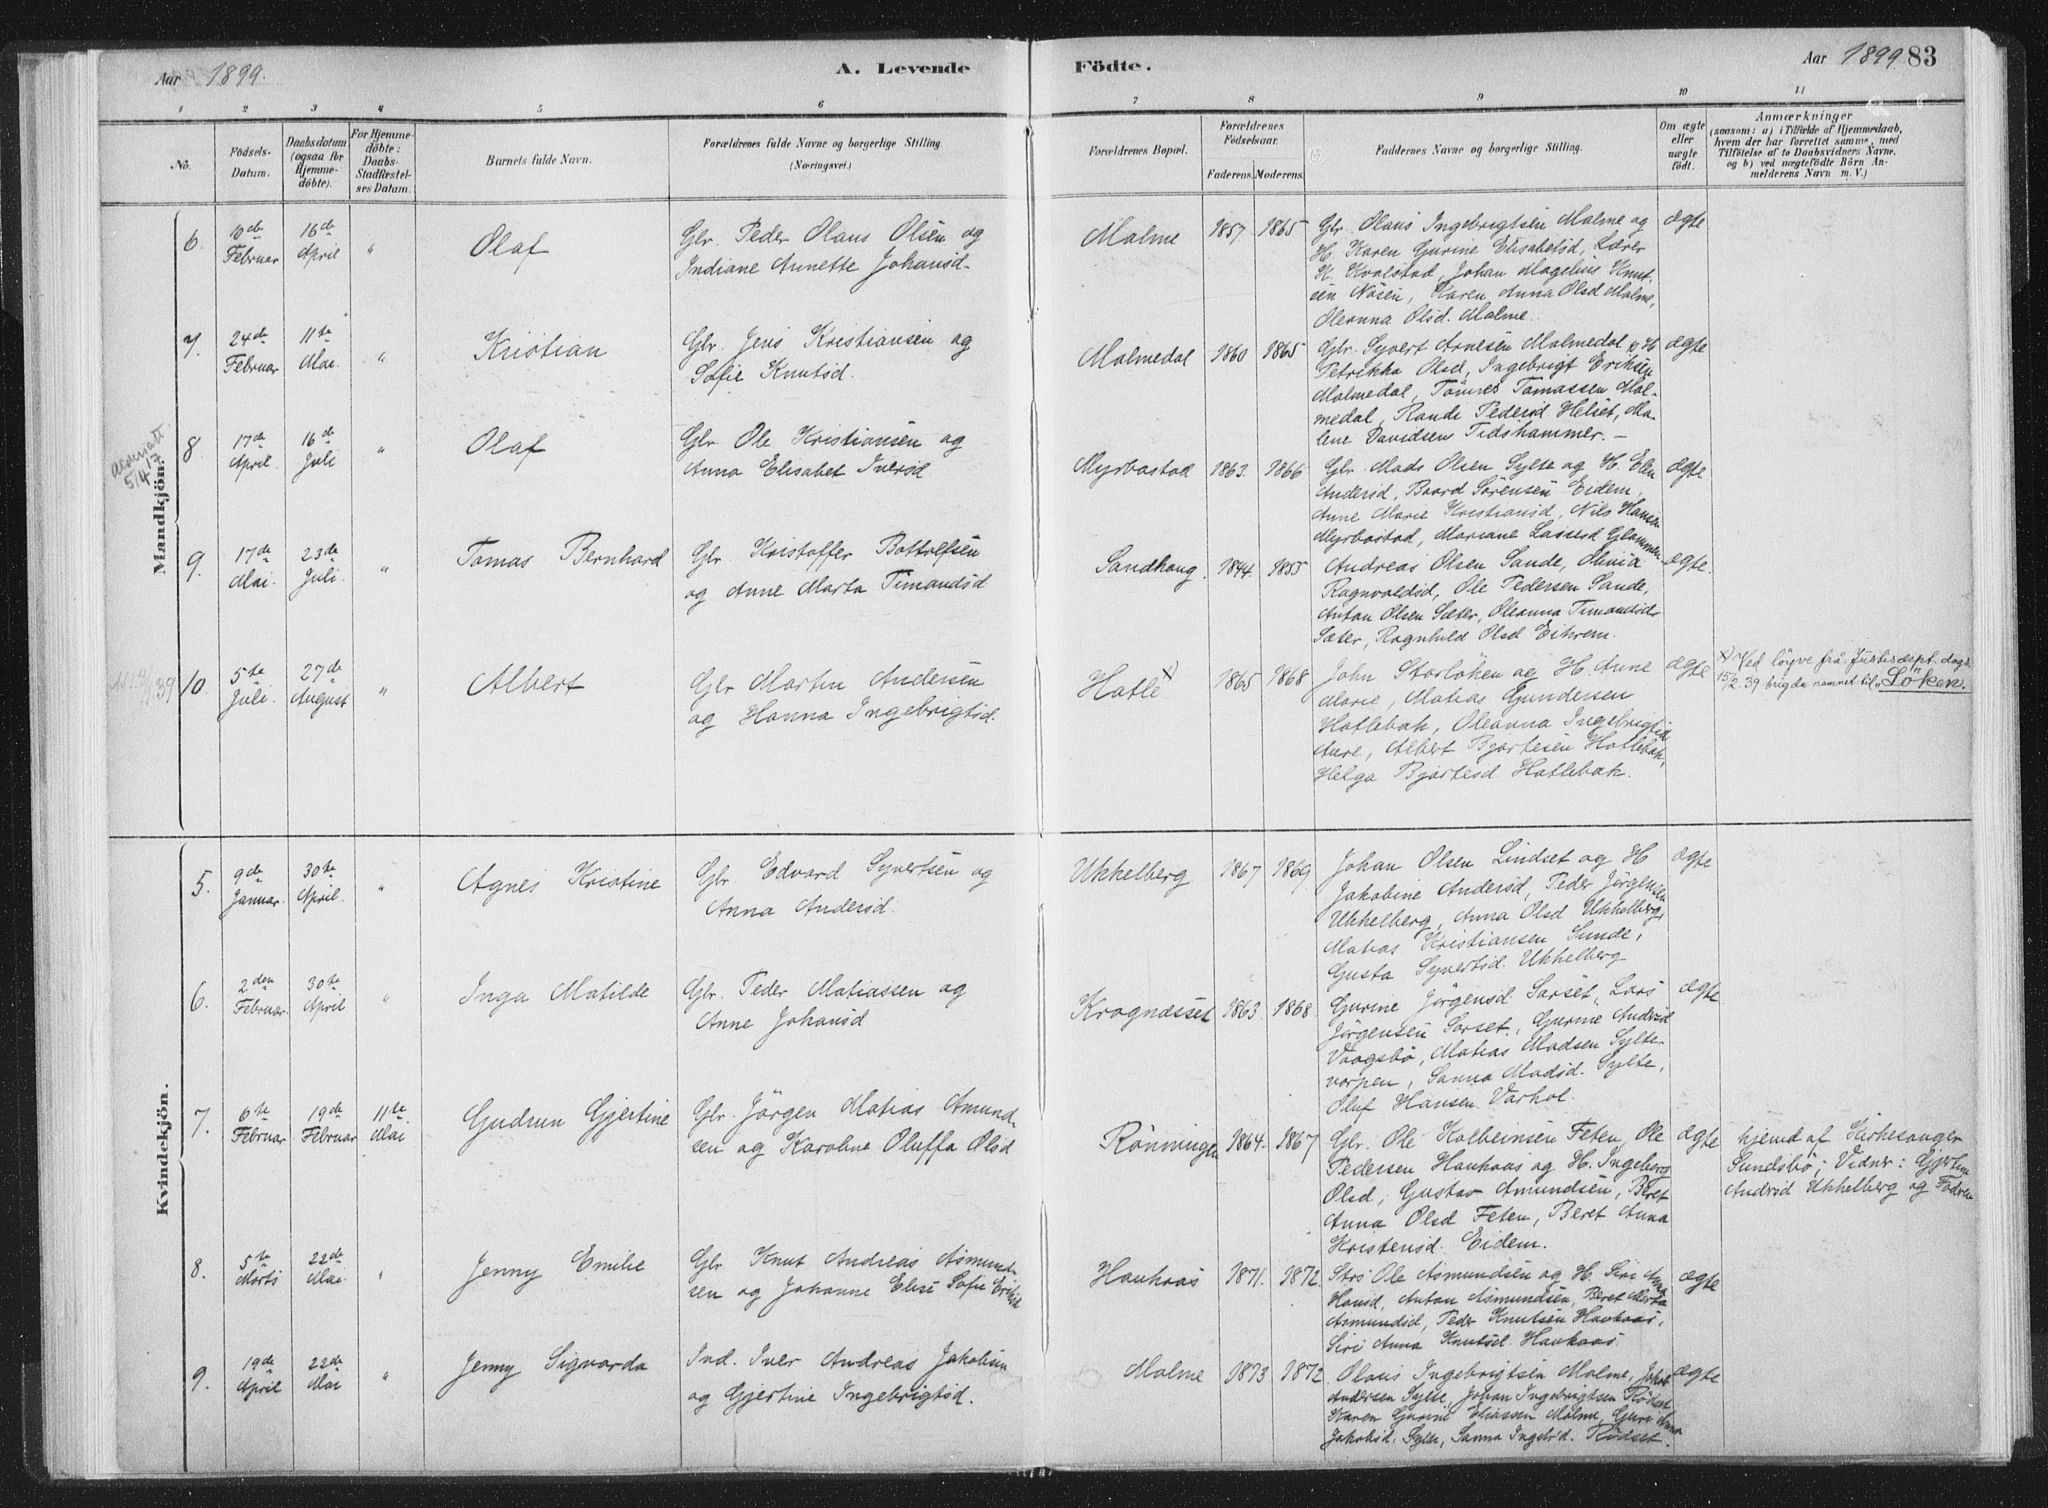 Aar 1899. A. Levende Födte. Aar 1899 83
1 2 3 4 5 6 7 8 9 10 11
No.
Födsels-Datum.
Daabsdatum (ogsaa for Hjemme-döbte).
For Hjemme-döbte: Daabs-Stadfæstel-ses Datum.
Barnets fulde Navn.
Forældrenes fulde Navne og borgerlige Stilling. (Næringsvei.)
Forældrenes Bopæl.
Forældrenes Födselsaar.
Faderens. Moderens.
Faddernes Navne og borgerlige Stilling.
Om ægte eller uægte födt.
Anmærkninger
(saasom: a) i Tilfælde af Hjemmedaab,
hvem der har forrettet samme, med
Tilföielse af to Daabsvidners Navne,
og b) ved uægtefödte Börn An-
melderens Navn m. V.)
Mandkjön.
6. 16de April " Olaf
Februar
Glr. Peder Olaus Olsen og
Indiane Annette Johansd.
Malme 1857 1865
Glr. Olaus Ingebrigtsen Malme og
H. Karen Gurine Elisabetsd, Lærer
K. Kvalstad, Johan Magelius Knut-
sen Nösen, Karen Anna Olsd Malme,
Oleanna Olsd. Malme.
ægte
7. 24de Februar 11te Mai. " Kristian
Glr. Jens Kristiansen og
Sofie Knutsd.
Malmedal 1860 1865
Glr. Syvert Arnesen Malmedal og H
Petrikka Olsd, Ingebrigt Eriksen
Malmedal, Tönnes Tomassen Mal-
medal, Randi Pedersd Helset, Ma-
lene Davidsen Tidshammer. —
ægte
5/4 17
8. 17de April. 16de Juli " Olaf
Glr. Ole Kristiansen og
Anna Elisabet Iversd
Myrbostad 1863. 1866
Glr. Mads Olsen Sylte og H. Elen
Andersd, Baard Sörensen Eidem,
Anne Marie Kristiansd, Nils Hansen
Myrbostad, Mariane Lassesd Glammen
ægte
9. 17de Mai. 23de Juli. " Tomas Bernhard
Glr. Kristoffer Bottolfsen
og Anne Marta Timandsd
Sandhaug. 1844. 1855
Andreas Olsen Sande, Olinia
Ragnvaldsd, Ole Pedersen Sande,
Anton Olsen Sæter, Oleanna Timandsd
Sæter, Ragnhild Olsd Eikrem.
ægte.
10. 5te Juli. 27de August " Albert
Glr Martin Andersen
og Hanna Ingebrigtsd.
Hatle x) 1865 1868
John Storlöken og H. Anne
Marie, Matias Gundersen
Hatlebak, Oleanna Ingebrigtsd
Aure, Albert Bjartesen Hatlebak,
Helga Bjartesd Hatlebak.
ægte
x) Ved löyve frå Justisdept. dags.
15/2 39 brigda namnet til „Löken.
Kvindekjön.
5. 9de Januar. 30te April. " Agnes Kristine
Glr Edvard Syvertsen og
Anna Andersd.
Ukkelberg 1867 1869
Johan Olsen Lindset og H
Jakobine Andersd, Peder Jörgensen
Ukkelberg, Anna Olsd Ukkelberg,
Matias Kristiansen Sunde,
Gusta Syvertsd. Ukkelberg
ægte
6. 2den Februar. 30te April " Inga Matilde
Glr. Peder Matiassen og
Anne Johansd
Kragnæsset 1863. 1868.
Gurine Jörgensd. Sorset, Lars
Jörgensen Sorset, Gurine Andersd
Vaagsbö, Matias Madsen Sylte-
varpen, Sanna Madsd. Sylte,
Oluf Hansen Varhol.
ægte.
7. 6te Februar 19de Februar 11te Mai Gudrun Gjertine
Glr. Jörgen Matias Amund-
sen og Karoline Oluffa Olsd
Rönningen 1864. 1867
Glr. Ole Kolbeinsen Feten, Ole
Pedersen Haukaas og H. Ingeborg
Olsd, Gustav Amundsen, Beret
Anna Olsd Feten, Beret Anna
Kristensd. Eidem.
ægte
hjemd af Kirkesanger
Sundsbö; Vidner: Gjertine
Andersd Ukkelberg og Fadren
8. 5te Marts 22de Mai. " Jenny Emilie
Glr. Knut Andreas Asmund-
sen og Johanne Elise Sofie Eriksd
Haukaas 1871. 1872
Strs Ole Asmundsen og H. Siri Anna
Hansd, Anton Asmundsen, Beret Marta
Asmundsd, Peder Knutsen Haukaas,
Siri Anna Knutsd. Haukaas.
ægte
9. 19de April 22de Mai " Jenny Sigvarda
Ind. Iver Andreas Jakobsen
og Gjertine Ingebrigtsd.
Malme 1873 1872
Olaus Ingebrigtsen Malme, Jakob
Andersen Sylte, Johan Ingebrigtsen Rödset,
Karen Gurine Eliassen Malme, Guri Anna
Jakobsd. Sylte, Sanna Ingebr'd. Rödset.
ægte